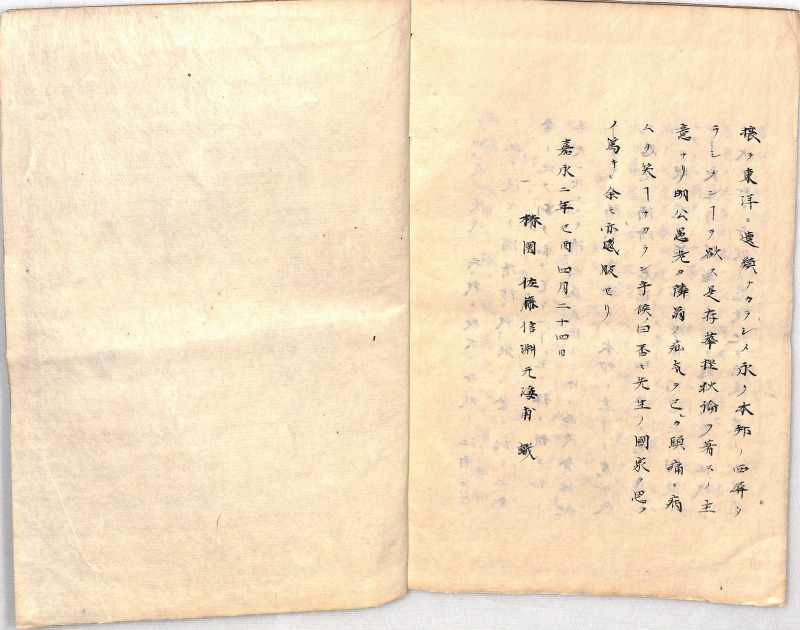 攘ヲ東洋ニ遺類ナカラシメ永ク本邦ノ西屏タ
ラシメンヿヲ欲ス是存華挫狄論ヲ著スノ主
意ナリ明公愚老カ隣翁ノ疝気ヲ已カ頭痛ニ病
ムヲ笑フヿナカラン乎候ノ曰否々先生ノ國家ヲ思フ
ノ篤キ余モ亦感服セリ
嘉永二年己酉四月二十四日
椿園 佐藤信淵元海甫 識